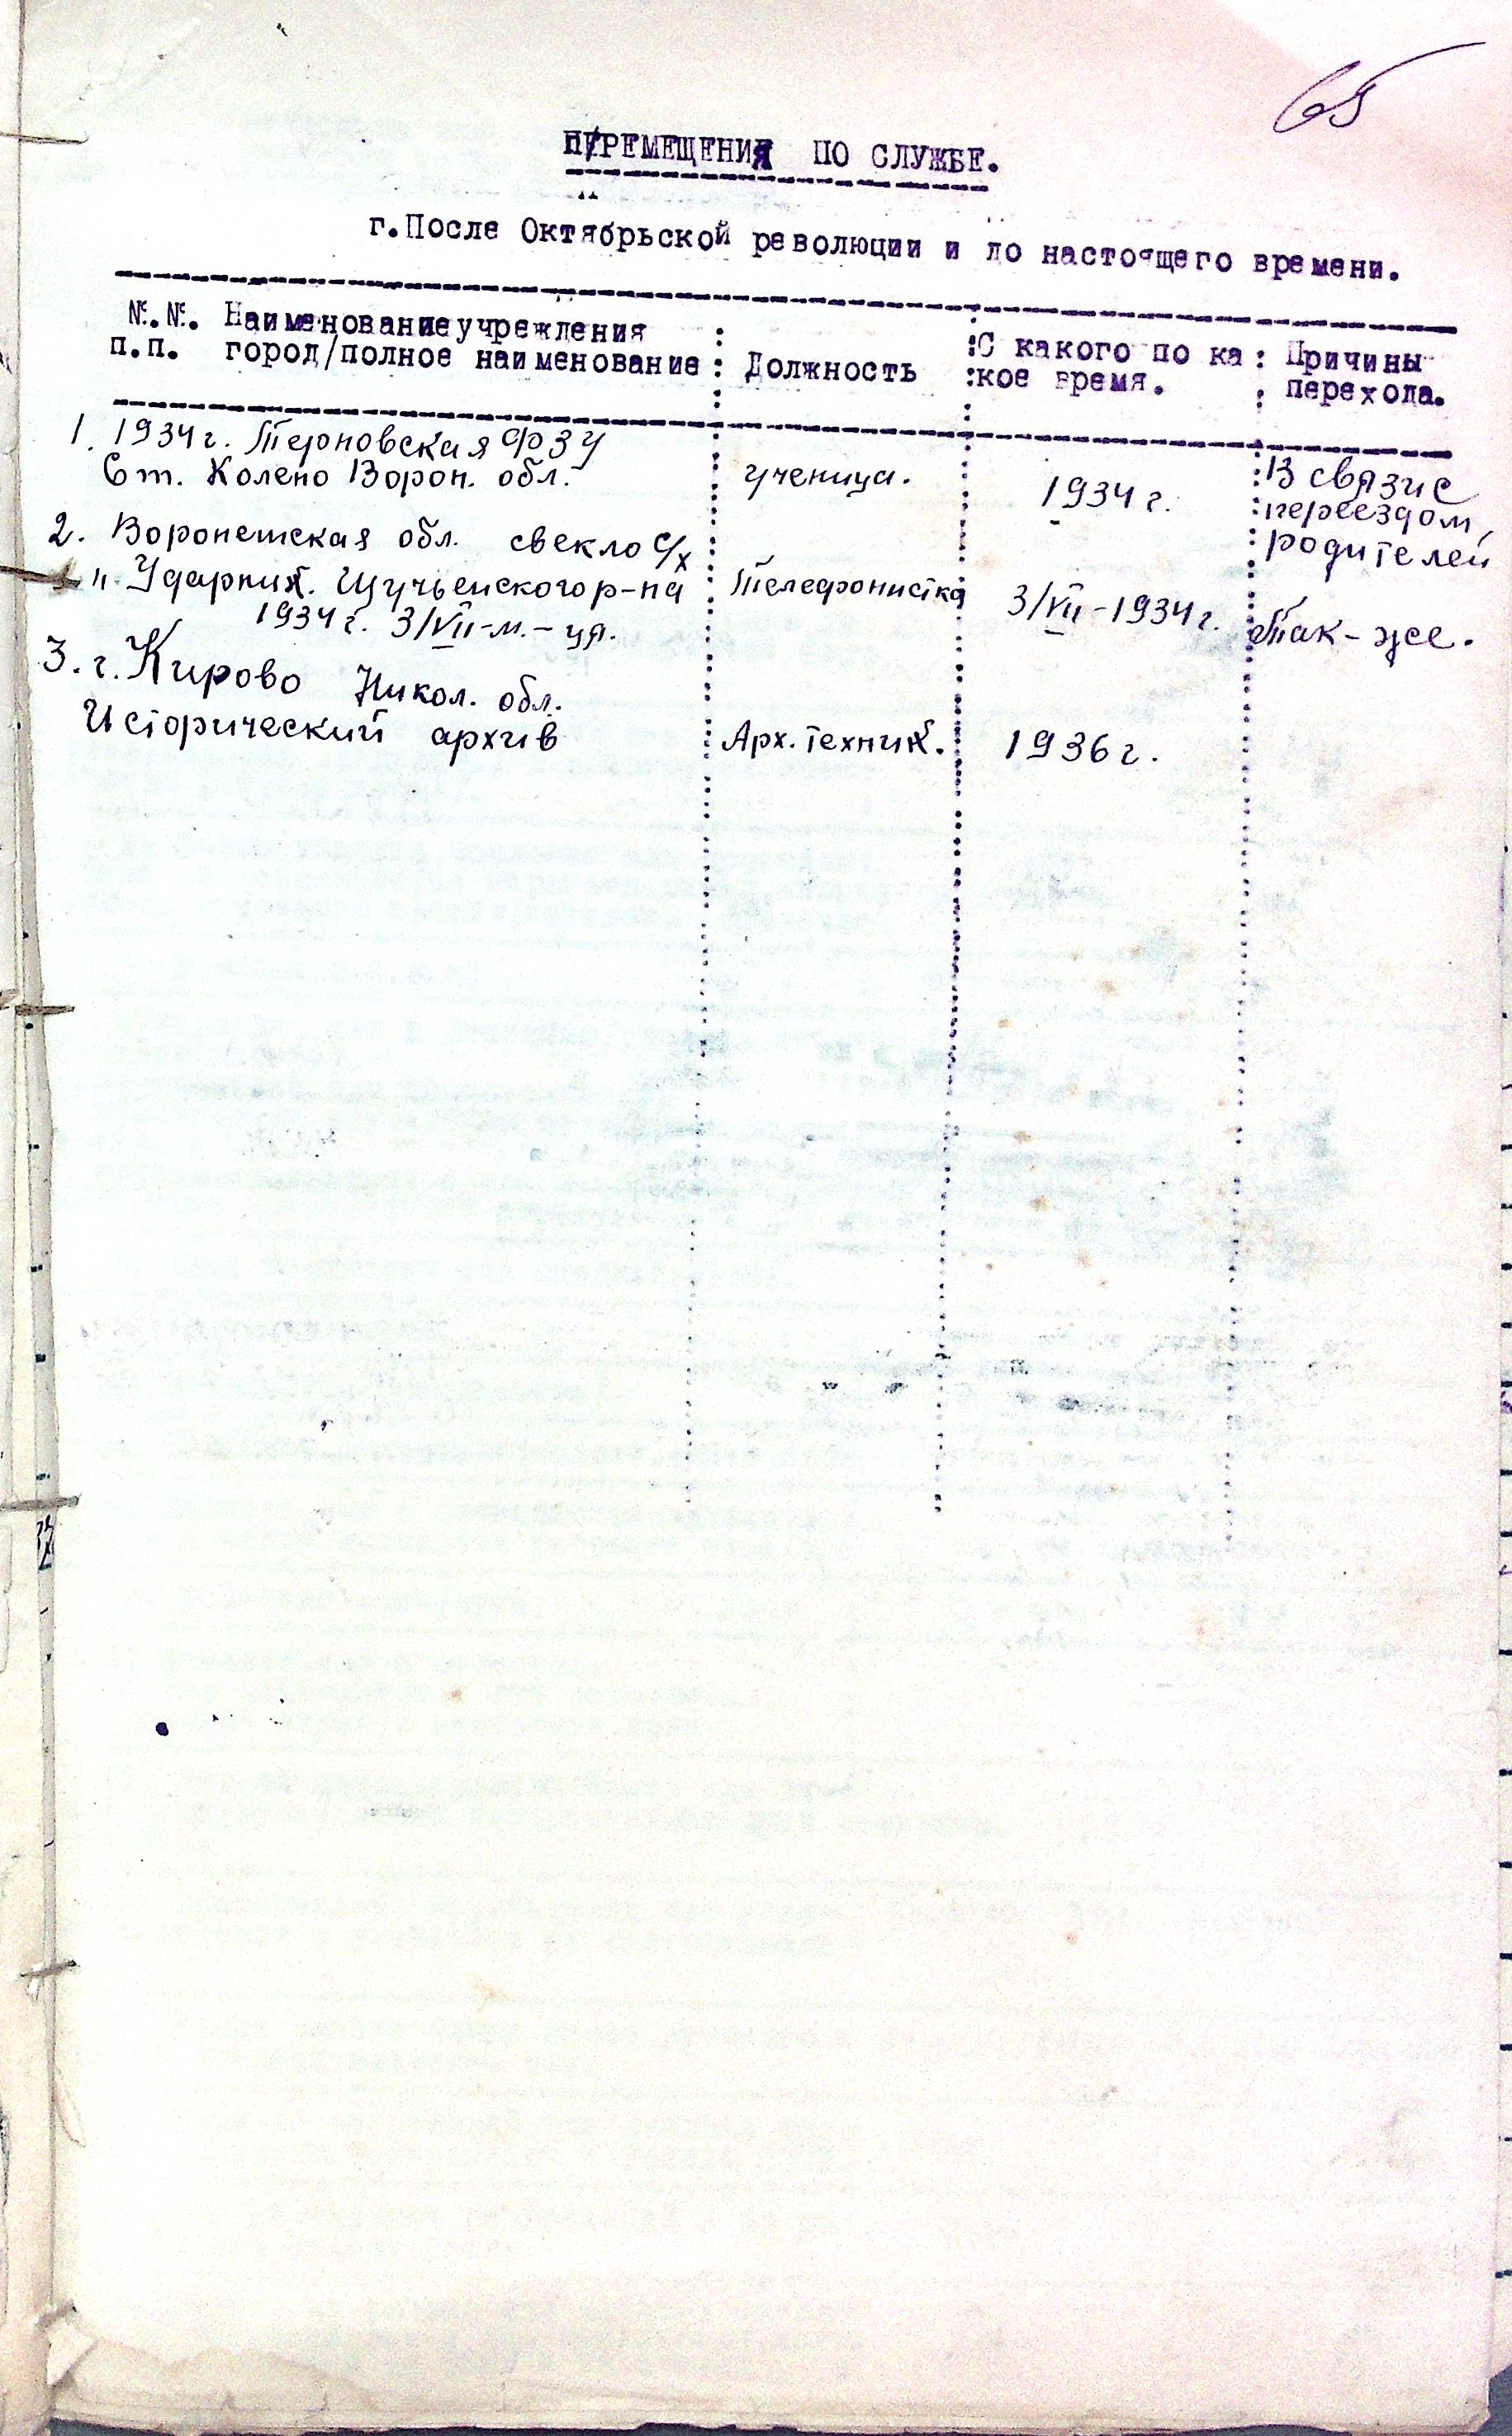 65
ПЕРЕМЕЩЕНИЯ ПО СЛУЖБЕ.
г.После Октябрьской революции и до настоящего времени.
№.№. Наименование учреждения
п.п. город/полное наименование : Должность :С какого по ка : Причины
:кое время. : перехода.
1. 1934 г. Терновская ФЗУ
Ст. Колено Ворон. обл. ученица. 1934 г. В связи с
переездом
родителей
2. Воронежская обл. свекло с/х
"Ударник". Щучьенского р-на Телефонистка 3/VII-1934 г. Так-же.
1934 г. 3/VII-м.-ця.
3. г. Кирово Никол. обл.
Исторический архив Арх. техник. 1936 г.